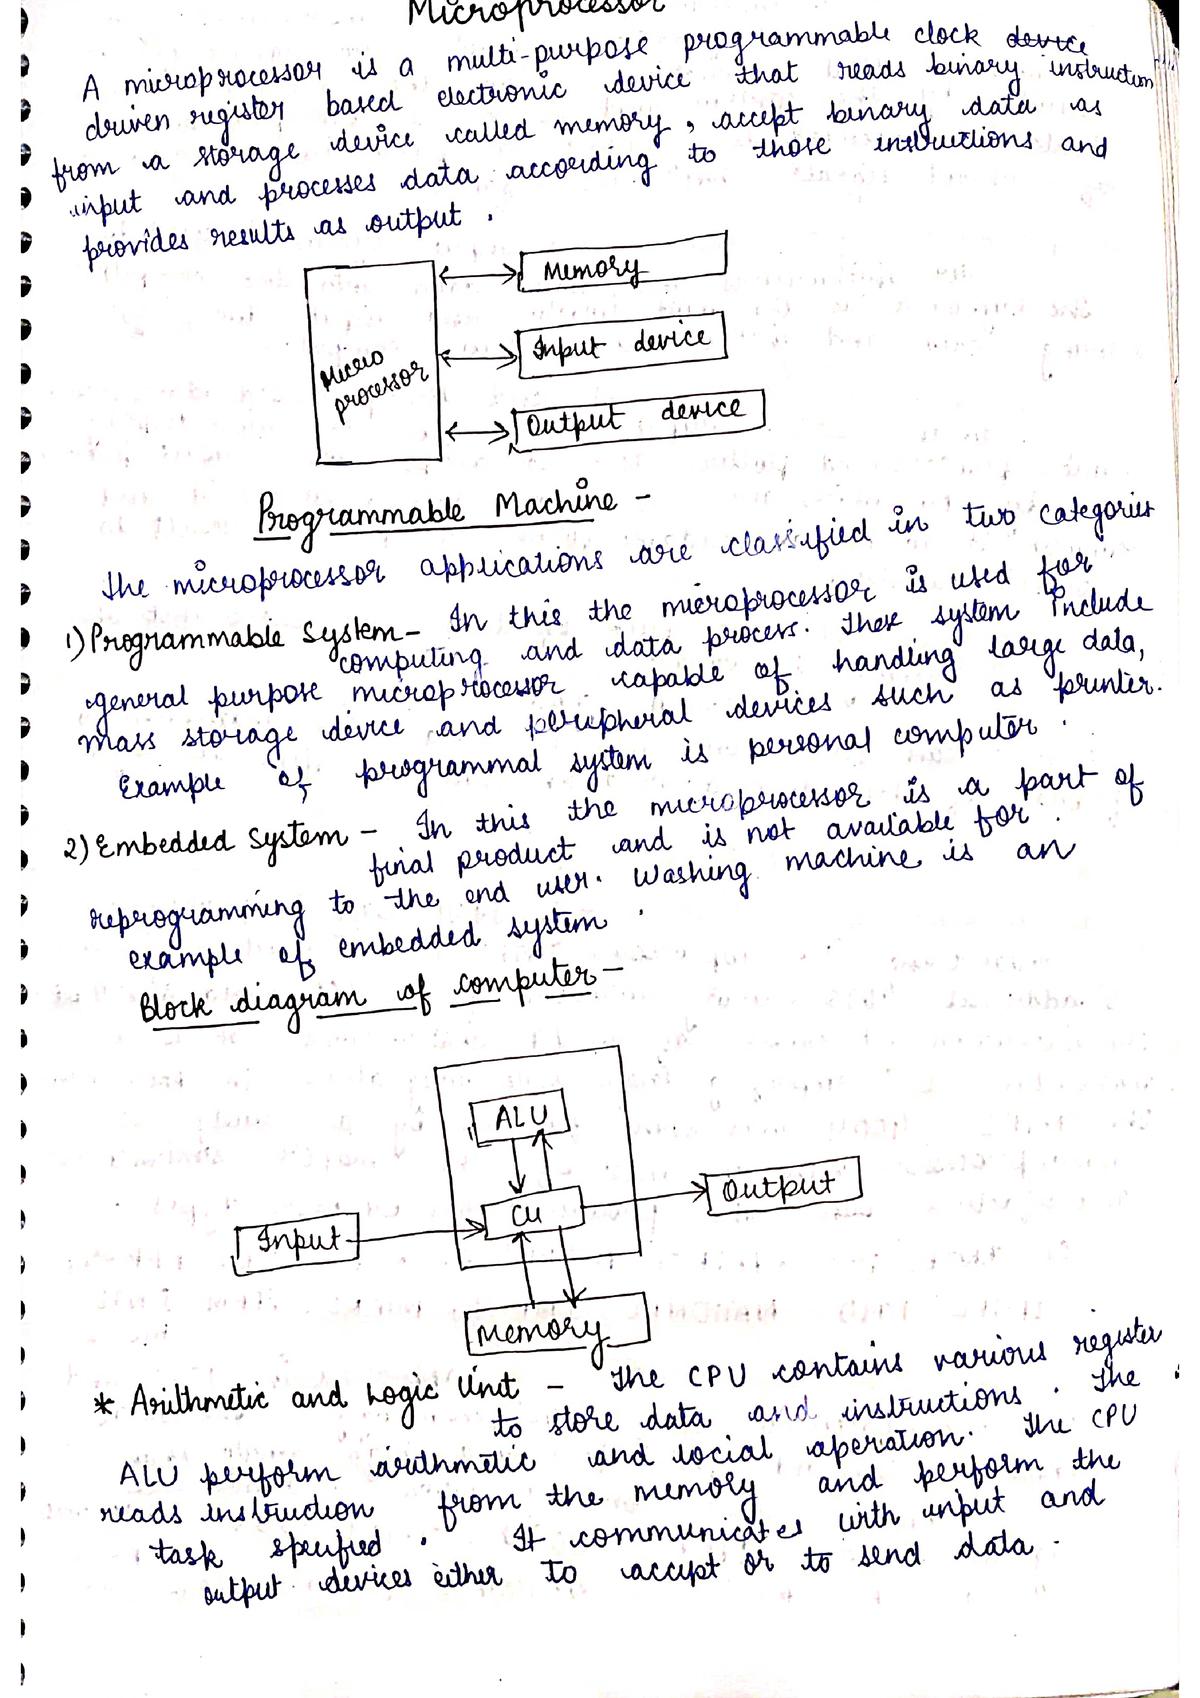 Microprocessor
A microprocessor is a multi-purpose programmable clock device
driven register based electronic device that reads binary instruction
from a storage device called memory, accept binary data as
input and processes data according to those instructions and
provides results as output.
Micro
processor
Memory
Input device
Output device
Programmable Machine -
The microprocessor applications are classified in two categories
1) Programmable System - In this the microprocessor is used for
computing and data process. These system include
general purpose microprocessor capable of handling large data,
mass storage device and peripheral devices such as printer.
Example of programmal system is personal computer.
2) Embedded System - In this the microprocessor is a part of
final product and is not available for
reprogramming to the end user. Washing machine is an
example of embedded system.
Block diagram of computer -
ALU
CU
Input
Output
Memory
* Arithmetic and Logic Unit - The CPU contains various register
to store data and instructions. The
ALU perform arithmetic and local aperation. The CPU
reads instruction from the memory and perform the
task specified. It communicates with input and
output devices either to accept or to send data.